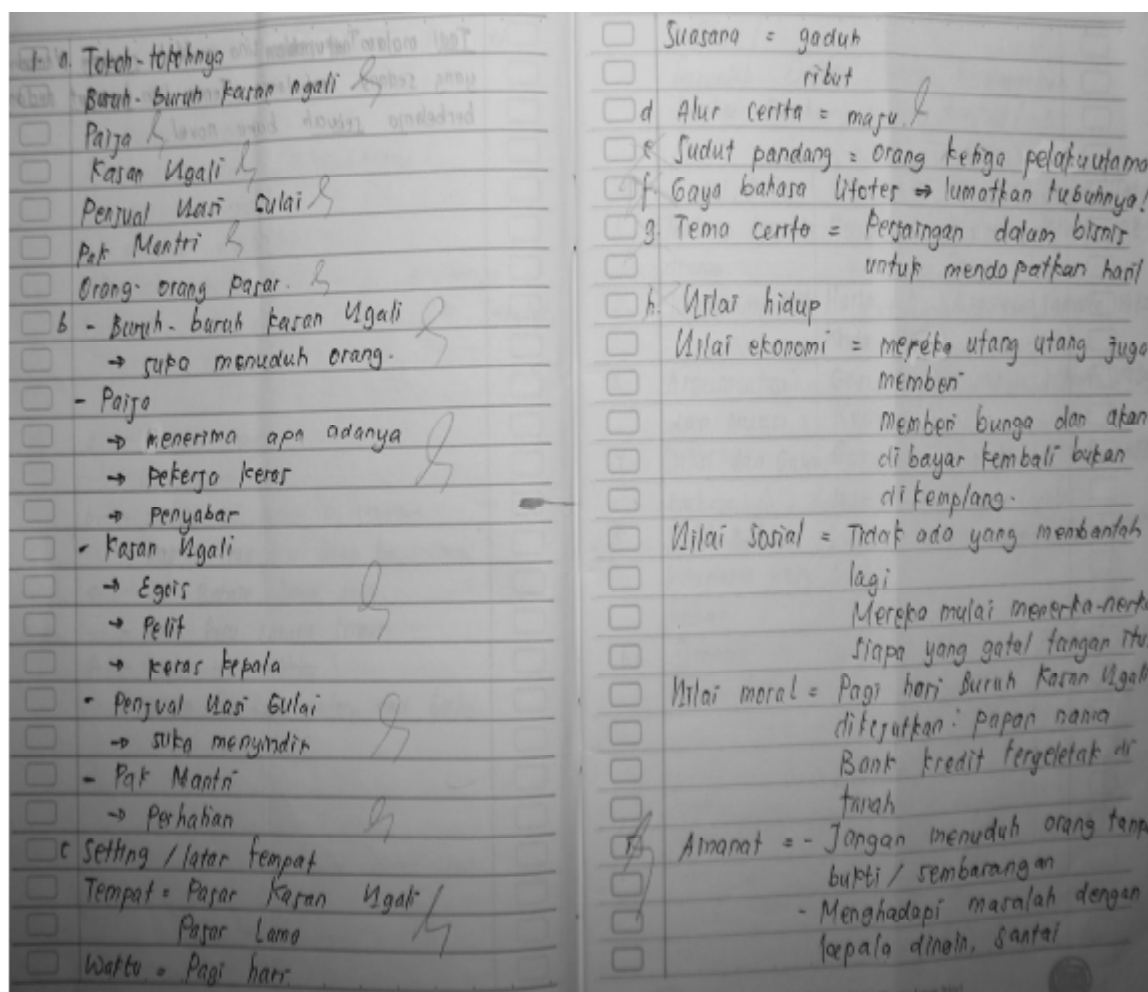 1. a. Tokoh-tokohnya
Buruh-buruh kasan ngali
Paija
Kasan Ngali
Penjual Nasi Gulai
Pak Mantri
Orang-orang Pasar.
b - Buruh-buruh kasan Ngali
→ suka menuduh orang.
- Paija
→ menerima apa adanya
→ pekerja keras
→ penyabar
- Kasan Ngali
→ Egois
→ Pelit
→ keras kepala
- Penjual Nasi Gulai
→ suka menyindir
- Pak Mantri
→ Perhatian
c Setting / latar tempat
Tempat = Pasar Kasan Ngali
Pasar Lama
Waktu = Pagi hari
Suasana = gaduh
ribut
d Alur cerita = maju.
e Sudut pandang = orang ketiga pelaku utama
f Gaya bahasa litotes ⇒ lumatkan tubuhnya!
g. Tema cerita = Persaingan dalam bisnis
untuk mendapatkan hasil
h. Nilai hidup
Nilai ekonomi = mereka utang utang juga
memberi
memberi bunga dan akan
di bayar kembali bukan
di kemplang.
Nilai Sosial = Tidak ada yang membantah
lagi
Mereka mulai menerka-nerka
siapa yang gatal tangan itu.
Nilai moral = Pagi hari Buruh Kasan Ngali
dikejutkan: papan nama
Bank kredit tergeletak di
tanah
Amanat = - Jangan menuduh orang tanpa
bukti / sembarangan
- Menghadapi masalah dengan
kepala dingin, santai